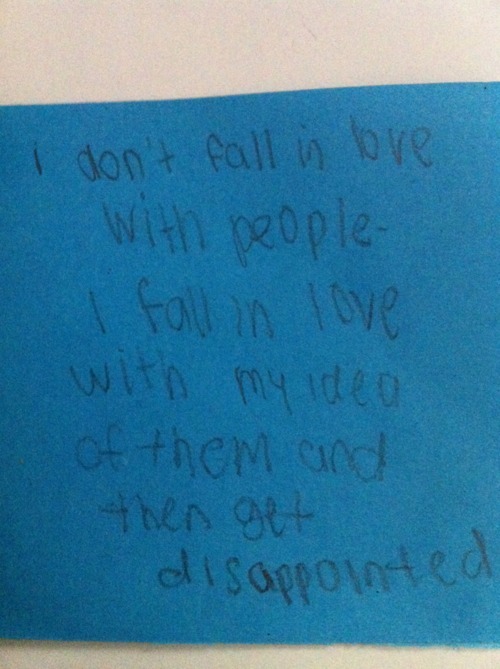 I don't fall in love
with people-
I fall in love
with my idea
of them and
then get
disappointed